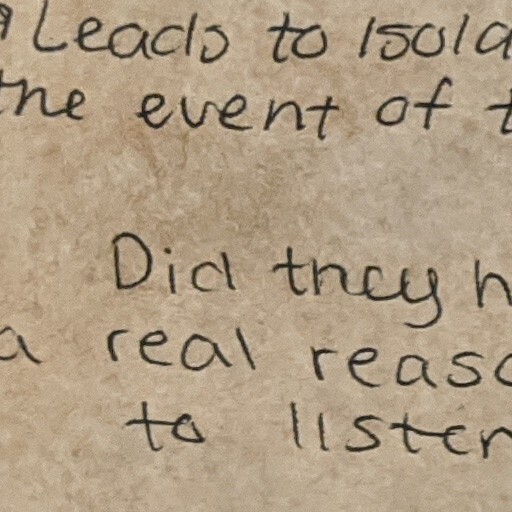 Leads to Isola
the event of t
Did they h
a real reaso
to listen